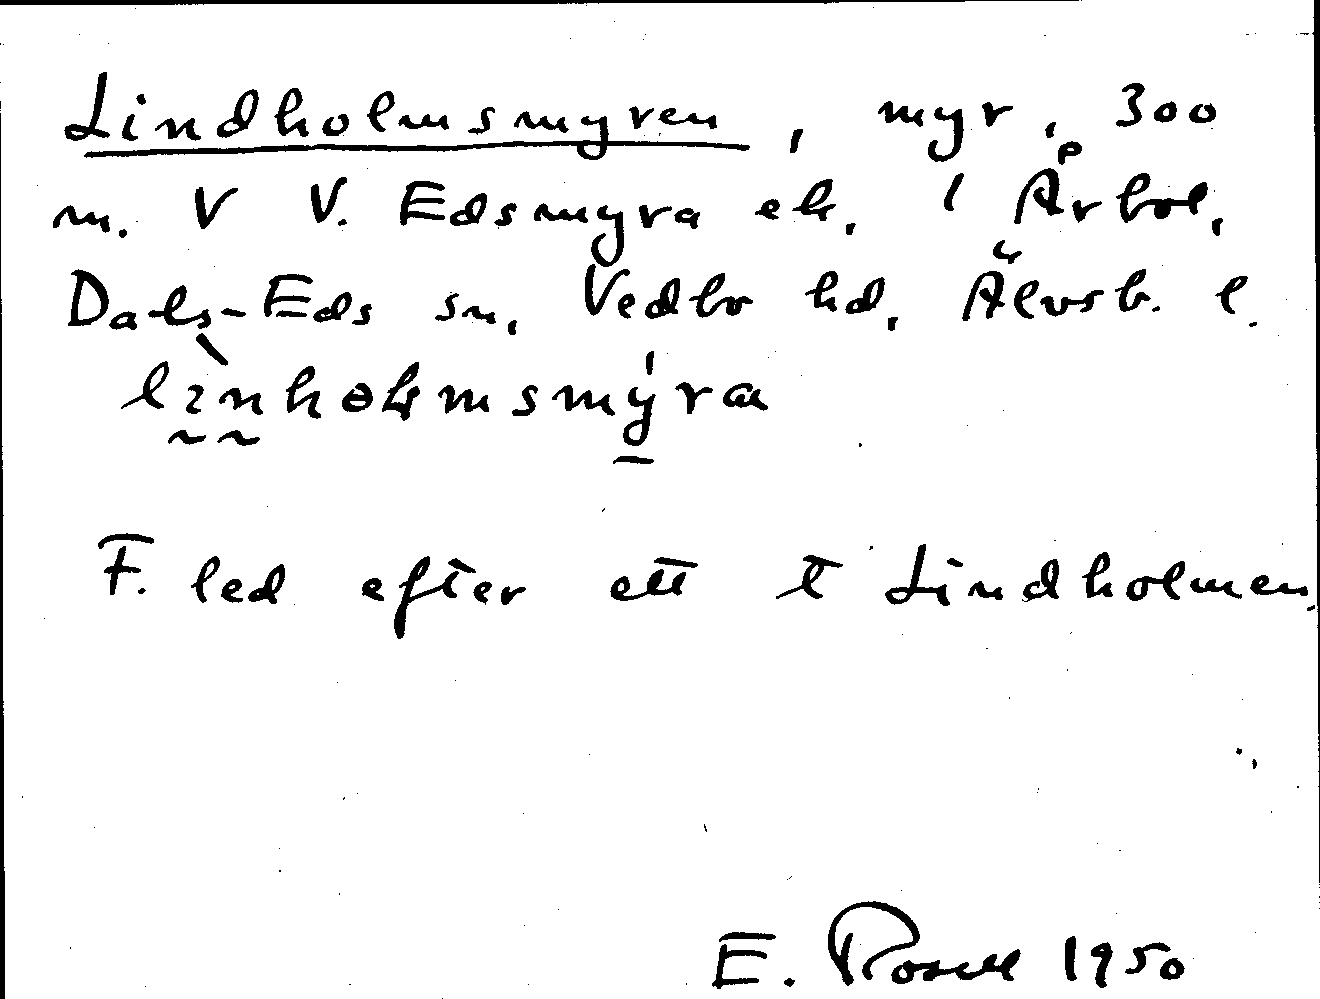 Lindholmsmyren, myr, 300
m. V V. Edsmyra ek. i Årbol,
Dals-Eds sn, Vedbo hd, Älvsb. l.
F. led efter ett t Lindholmen.
E. Rosell 1950